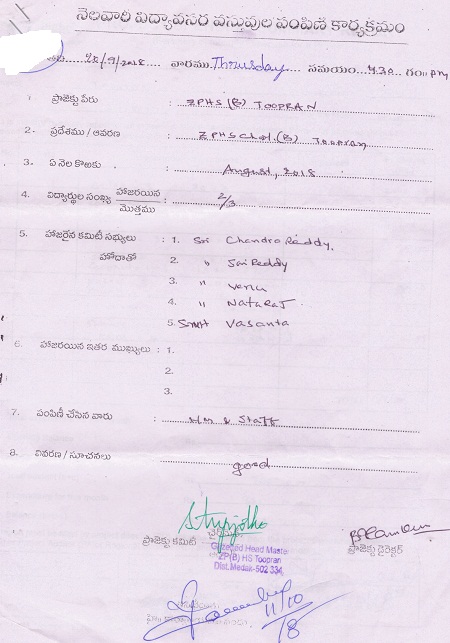 నెలవారీ విద్యావసర వస్తువుల పంపిణీ కార్యక్రమం
తేది. వారము. Thursday సమయం. 4.30 గం॥ pm
1. ప్రాజెక్టు పేరు : ZPHS (B) TOOPRAN
2. ప్రదేశము / ఆవరణ : ZPHSchol. (B) Toopran
3. ఏ నెల కొఱకు : August, 2018
4. విద్యార్థుల సంఖ్య హాజరయిన / మొత్తము : 2/3
5. హాజరైన కమిటీ సభ్యులు హోదాతో : 1. Sri Chandra Reddy.
2. " Sai Reddy
3. " Venu
4. " NATARAJ.
5. Smt Vasanta
6. హాజరయిన ఇతర ముఖ్యులు : 1.
2.
3.
7. పంపిణీ చేసిన వారు : H/M & Staff
8. వివరణ / సూచనలు : good
ప్రాజెక్టు కమిటీ ప్రాజెక్టు డైరెక్టర్
Gazetted Head Maste
ZP(B) HS Toopran
Dist.Medak-502 334.
11/10/18